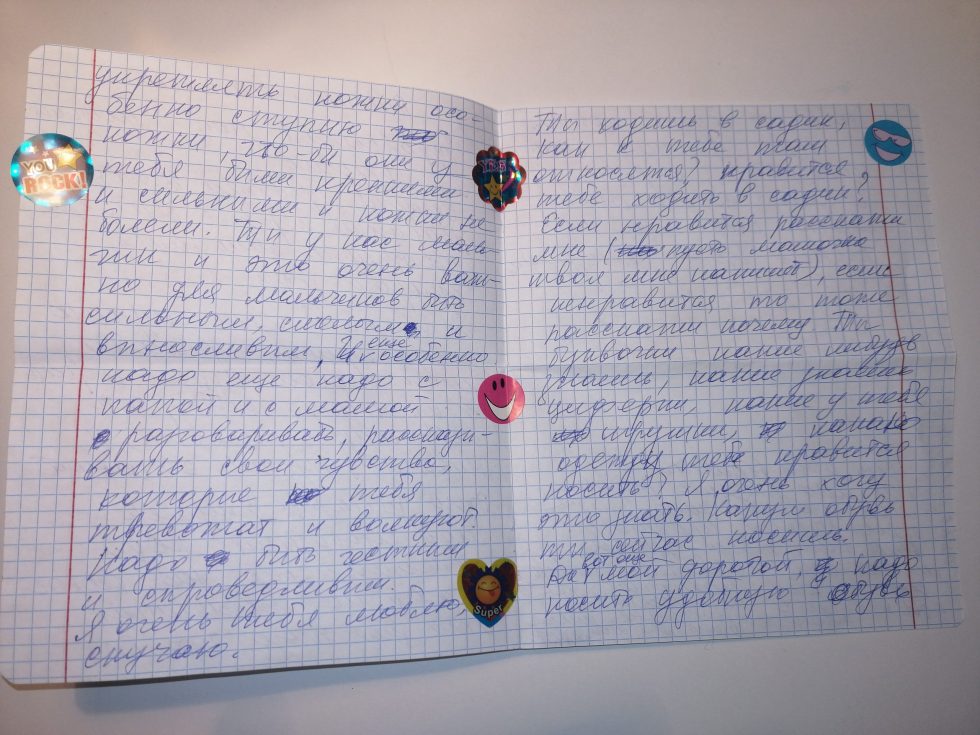 укреплять ножки осо-
бенно ступню
ножки, что бы они у
тебя были крепкими
и сильными и ножки не
болели. Ты у нас маль-
чик и это очень важ-
но для мальчиков быть
сильным, смелым и
выносливым, И еще особенно
надо еще надо с
папой и с мамой
разговаривать, рассказы-
вать свои чувства,
которые тебя
тревожат и волнуют.
Надо быть честным
и справедливым.
Я очень тебя люблю,
скучаю.
Ты ходишь в садик,
как к тебе там
относятся? нравится
тебе ходить в садик?
Если нравится расскажи
мне (пусть мамочка
твоя мне напишет), если
ненравится то тоже
расскажи почему. Ты
буквочки какие нибудь
знаешь, какие знаешь
циферки, какие у тебя
игрушки, какую
одежду тебе нравится
носить? Я очень хочу
это знать. Какую обувь
ты сейчас носишь.
вот еще
мой дорогой, надо
носить удобную обувь
YOU ROCK!
YES
Super